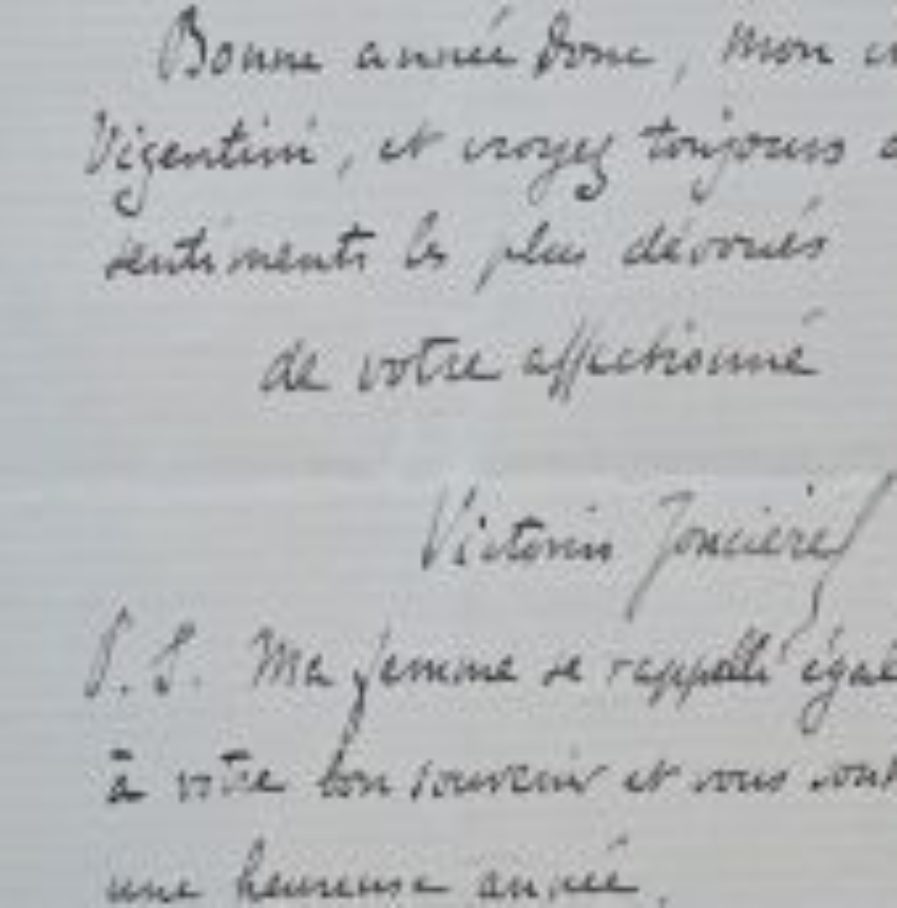 Bonne année donc, mon
Vizentini, et croyez toujours
sentiments les plus dévoués
de votre affectionné
Victorin Joncières
P. S. Ma femme se rappelle
à votre bon souvenir et vous
une heureuse année.